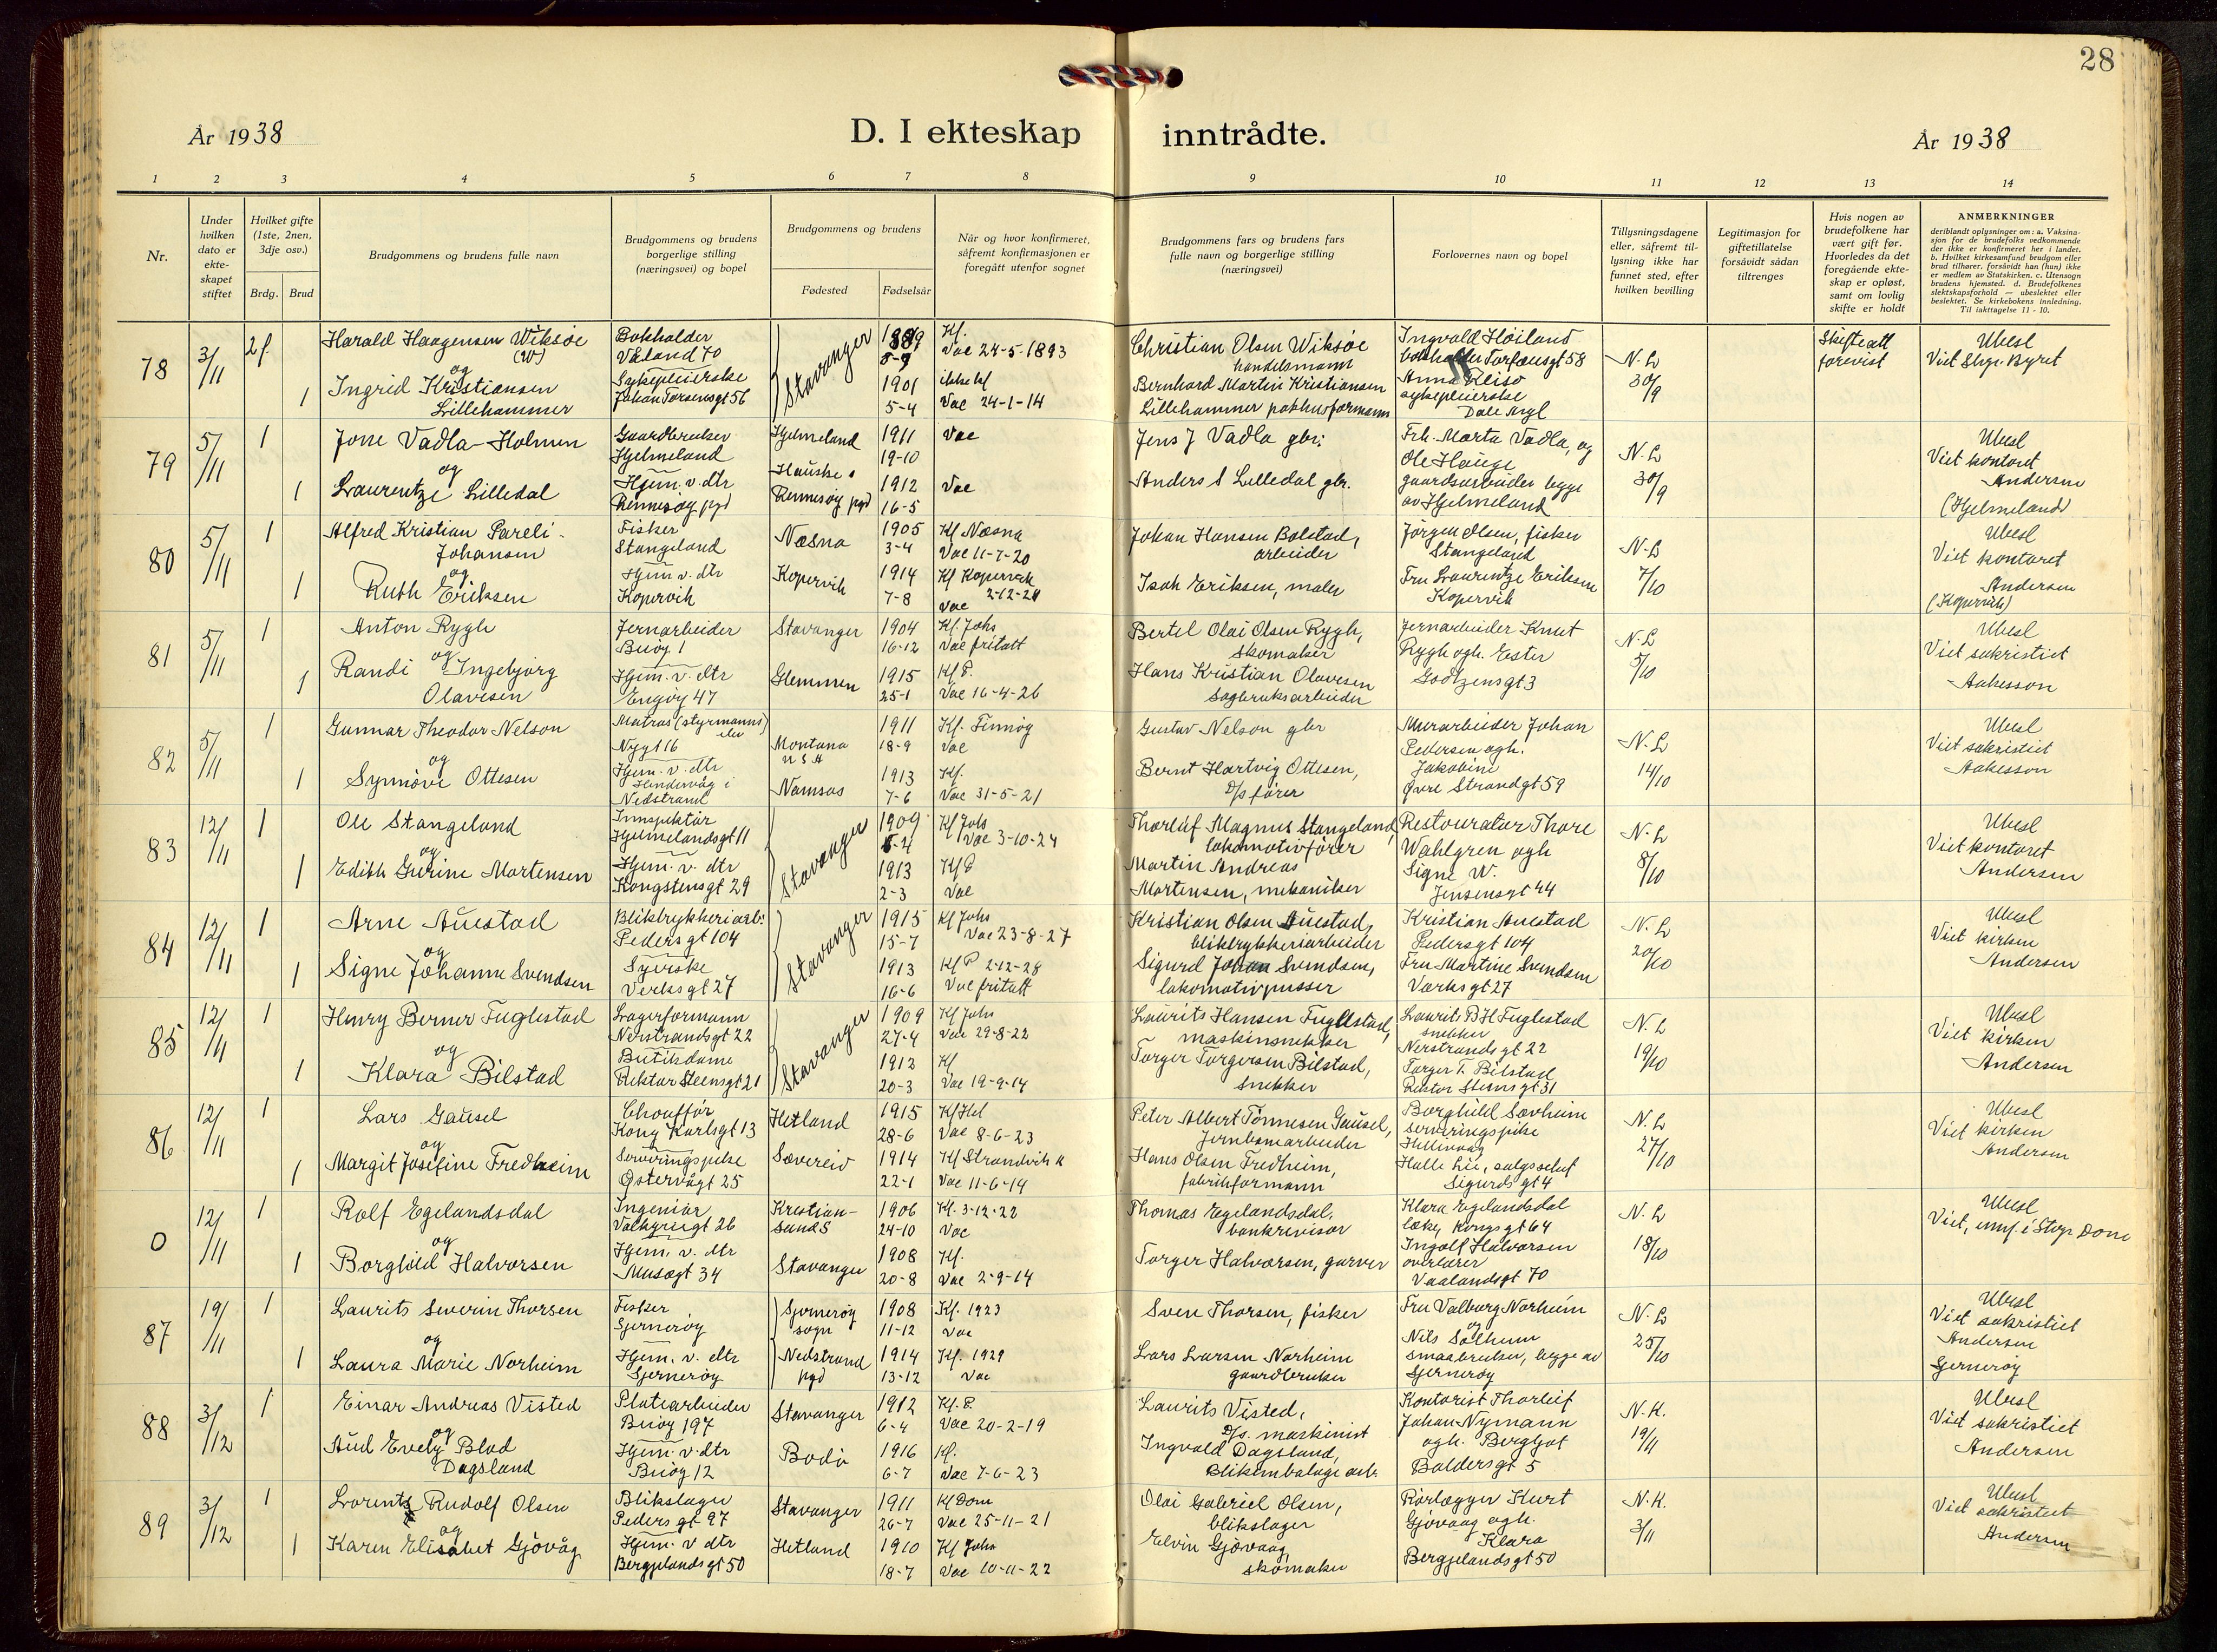 28
År 1938
D. I ekteskap inntrådte.
År 1938
1 2 3 4 5 6 7 8 9 10 11 12 13 14
Nr.
Under hvilken dato er ekteskapet stiftet
Hvilket gifte (1ste, 2nen, 3dje osv.)
Brdg. Brud
Brudgommens og brudens fulle navn
Brudgommens og brudens borgerlige stilling (næringsvei) og bopel
Brudgommens og brudens
Fødested
Fødselsår
Når og hvor konfirmeret, såfremt konfirmasjonen er foregått utenfor sognet
Brudgommens fars og brudens fars fulle navn og borgerlige stilling (næringsvei)
Forlovernes navn og bopel
Tillysningsdagene eller, såfremt tillysning ikke har funnet sted, efter hvilken bevilling
Legitimasjon for giftetillatelse forsåvidt sådan tiltrenges
Hvis nogen av brudefolkene har vært gift før. Hvorledes da det foregående ekteskap er opløst, samt om lovlig skifte er holdt
ANMERKNINGER
deriblandt oplysninger om: a. Vaksinasjon for de brudefolks vedkommende der ikke er konfirmeret her i landet. b. Hvilket kirkesamfund brudgom eller brud tilhører, forsåvidt han (hun) ikke er medlem av Statskirken. c. Utensogn brudens hjemsted. d. Brudefolkenes slektskapsforhold — ubeslektet eller beslektet. Se kirkebokens innledning. Til iakttagelse 11 - 10.
78 3/11 2f. Harald Haagensen Wiksøe (W) Bokholder Våland 70 Stavanger Kf. Vac 24-5-1893 Christian Olsen Wiksøe handelsmann Ingvald Høiland Torfæusgt 58 N.L 30/9 Skifteatt forevist Ubesl Viet Stvgr. Byret
og 1 Ingrid Kristiansen Lillehammer Sykepleierske Johan Torsensgt 56 1901 5-4 ikke kf Vac 24-1-14 Bernhard Martin Kristiansen Lillehammer pakhusformann Anna Reiso sykepleierske
79 5/11 1 Jone Vadla-Holmen Gaardbruker Hjelmeland Hjelmeland 1911 19-10 Vac Jens J Vadla gbr. Frk. Marta Vadla, og Ole Hauge N.L 30/9 Ubesl Viet kontoret Andersen
og 1 Laurentze Lilledal Hjem. v. dtr Rennesøy pgd Hauske s Rennesøy pgd 1912 16-5 Vac Anders S Lilledal gbr. gaardsarbeider begge av Hjelmeland (Hjelmeland)
80 5/11 1 Alfred Kristian Pareli-Johansen Fisker Stangeland Næsna 1905 3-4 Kf Næsna Vac 11-7-20 Johan Hansen Bolstad, arbeider Jørgen Olsen, fisker Stangeland N.L 7/10 Ubesl Viet kontoret Andersen (Kopervik)
og 1 Ruth Eriksen Hjem v. dtr Kopervik Kopervik 1914 7-8 Kf Kopervik Vac Isak Eriksen, maler Fru Laurentze Eriksen Kopervik
81 5/11 1 Anton Rygh Jernarbeider Buøy 1 Stavanger 1904 16-12 Kf. Johs Vac fritatt Bertel Olai Olsen Rygh, skomaker Jernarbeider Knut Rygh ogh. Ester N.L 5/10 Ubesl Viet sakristiet Aakesson
og 1 Randi Ingebjørg Olavesen Hjem. v. dtr Engøy 47 Glemmen 1915 25-1 Kf P. Vac 16-4-26 Hans Kristian Olavesen Sagbruksarbeider Godtzensgt 3
82 5/11 1 Gunnar Theodor Nelson Matros (styrmanns) elev Nygt 16 Montana USA 1911 18-9 Kf. Finnøy Vac Gustav Nelson gbr Murarbeider Johan Pedersen ogh. N.L 14/10 Ubesl Viet sakristiet Aakesson
og 1 Synnøve Ottesen Hjem. v. dtr Hindervåg i Nedstrand Namsos 1913 7-6 Kf. Vac 31-5-21 Bernt Hartvig Ottesen, D/s fører Jakobine Øvre Strandgt 59
83 12/11 1 Ole Stangeland Innspektør Hjelmelandsgt 11 Stavanger 1909 Kf Johs Vac 3-10-24 Thorleif Magnus Stangeland, lokomotivfører Restouratør Thore Wahlgren ogh N.L 8/10 Ubesl Viet kontoret Andersen
og 1 Edith Gurine Mortensen Hjem. v. dtr Kongstensgt 29 1913 2-3 Kf P Vac Martin Andreas Mortensen, mekaniker Signe W. Jensensgt 44
84 12/11 1 Arne Auestad Bliktrykkeriarb. Pedersgt 104 Stavanger 1915 15-7 Kf Johs Vac 23-8-27 Kristian Olsen Auestad, bliktrykkeriarbeider Kristian Auestad Pedersgt 104 N.L 20/10 Ubesl Viet kirken Andersen
og 1 Signe Johanne Svendsen Syerske Verksgt 27 1913 16-6 Kf P 2-12-28 Vac fritatt Sigurd Johan Svendsen, lokomotivpusser Fru Martine Svendsen Værksgt 27
85 12/11 1 Henry Berner Fuglestad Lagerformann Nerstrandsgt 22 Stavanger 1909 27-4 Kf Johs Vac 29-8-22 Laurits Hansen Fuglestad, maskinsnekker Laurits B H Fuglestad snekker Nerstrandsgt 22 N.L 19/10 Ubesl Viet kirken Andersen
og 1 Klara Bilstad Butikdame Rektor Steensgt 21 1912 20-3 Kf Vac 19-9-14 Torger Torgersen Bilstad, snekker Torger T. Bilstad Rektor Steensgt 31
86 12/11 1 Lars Gausel Chouffør Kong Karlsgt 13 Hetland 1915 28-6 Kf Hel Vac 8-6-23 Peter Albert Tønnesen Gausel, Jernbanearbeider Borghild Sævheim serveringspike Hillevåg N.L 27/10 Ubesl Viet kirken Andersen
og 1 Margit Josefine Fredheim Serveringspike Østervågt 25 Sævereid 1914 22-1 Kf Strandvik k Vac 11-6-14 Hans Olsen Fredheim, fabrikformann Halle Lie, salgssjef Sigurdsgt 4
0 12/11 1 Rolf Egelandsdal Ingeniør Valkyriegt 26 Kristiansand S 1906 24-10 Kf. 3-12-22 Vac Thomas Egelandsdal, bankrevisor Klara Egelandsdal læke, Kongsgt 64 N.L 18/10 Ubesl Viet, i Stvgr Dom
og 1 Borghild Halvorsen Hjem. v. dtr Musègt 34 Stavanger 1908 20-8 Kf. Vac 2-9-14 Torger Halvorsen, garver Ingolf Halvorsen overlærer Vaalandsgt 70
87 19/11 1 Laurits Severin Thorsen Fisker Sjernerøy Sjernerøy sogn 1908 11-12 Kf. 1923 Vac Sven Thorsen, fisker Fru Valborg Norheim og N.L 25/10 Ubesl Viet sakristiet Andersen Sjernerøy
og 1 Laura Marie Norheim Hjem. v. dtr Sjernerøy Nedstrand pgd 1914 13-12 Kf. 1929 Vac Lars Larsen Norheim gaardbruker Nils Solheim smaabruker, begge av Sjernerøy
88 3/12 1 Einar Andreas Visted Platearbeider Buøy 197 Stavanger 1912 6-4 Kf. P. Vac 20-2-19 Laurits Visted, D/s. maskinist Kontorist Thorleif Johan Nymann N.K. 19/11 Ubesl Viet sakristiet Andersen
og Aud Evely Blad Dagsland Hjem. v. dtr Buøy 12 Bodø 1916 6-7 Kf. Vac 7-6-23 Ingvald Dagsland, Blikembalage arb. ogh. Bergljot Baldersgt 5
89 3/12 1 Lorents Rudolf Olsen Blikslager Pedersgt 97 Stavanger 1911 26-7 Kf Dom Vac 25-11-21 Olai Gabriel Olsen, blikslager Rørlægger Kurt Gjøvaag ogh. N.K. 3/11 Ubesl Viet sakristiet Andersen
og 1 Karen Elisabet Gjøvåg Hjem. v dtr Bergjelandsgt 50 Hetland 1910 18-7 Kf Johs Vac 10-11-22 Elvin Gjøvaag, skomaker Klara Bergjelandsgt 50